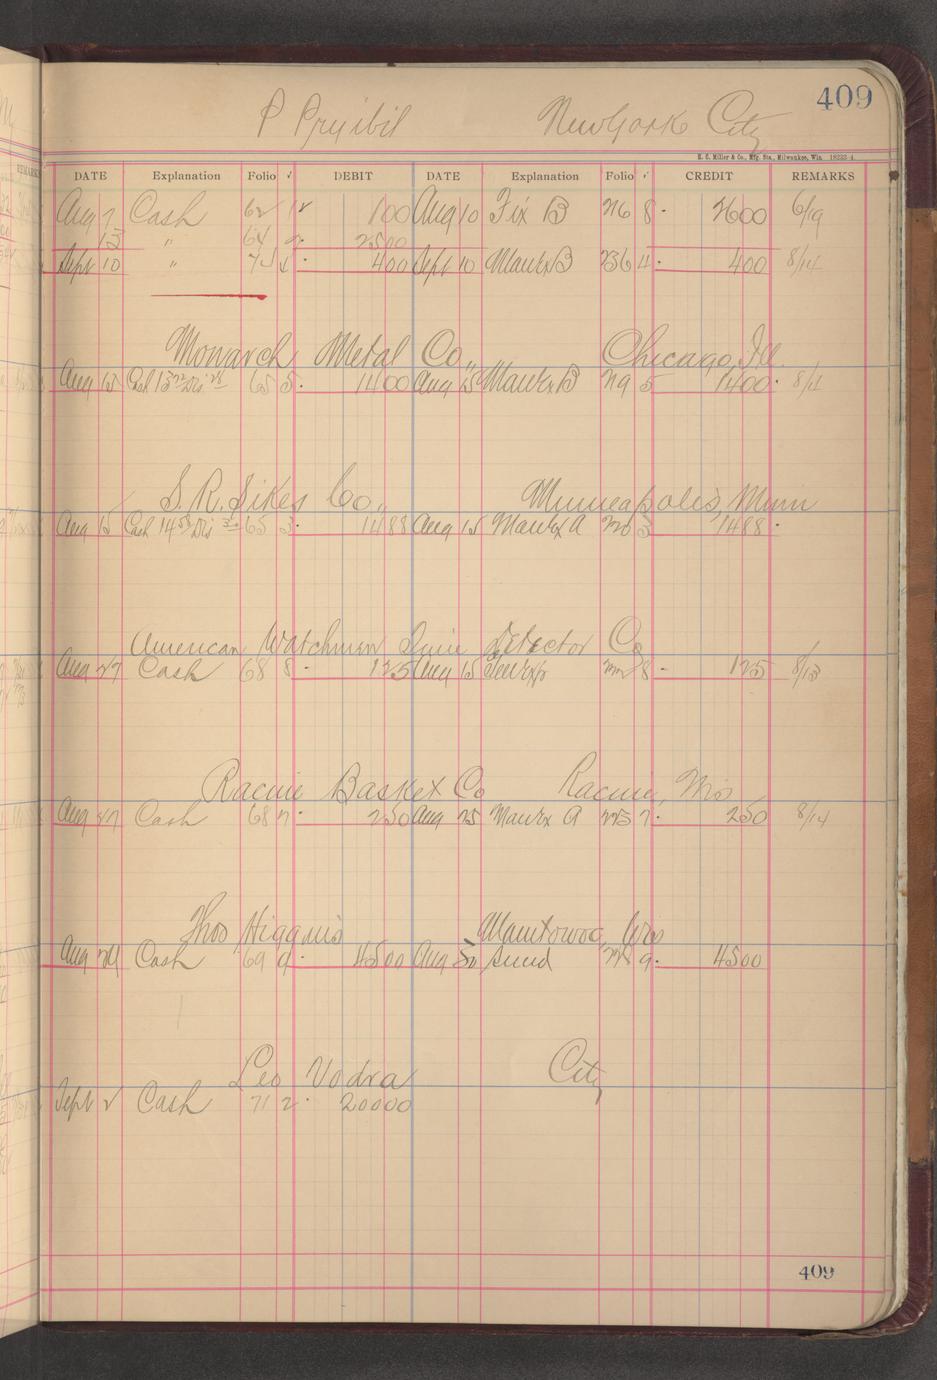 409
P Pryibil New York City
E. C. Miller & Co., Mfg. Sta., Milwaukee, Wis. 18222-4
DATE Explanation Folio √ DEBIT DATE Explanation Folio √ CREDIT REMARKS
Aug 7 Cash 62 12 100 Aug 10 Fix B 216 8 2600 6/19
13 " 64 2 2500
Sept 10 " 74 400 Sept 10 Manex B 236 11 400 8/14
Monarch Metal Co., Chicago, Ill.
Aug 15 Cash 13 72 Dis 28 65 5 1400 Aug 15 Manex B 219 5 1400 8/11
S. R. Sikes Co., Minneapolis, Minn
Aug 15 Cash 14 58 Dis 30 65 3 1488 Aug 15 Manex A 220 3 1488
American Watchmen Time Detector Co
Aug 27 Cash 68 8 125 Aug 15 222 8 125 8/13
Racine Basket Co Racine, Wis
Aug 27 Cash 68 7 250 Aug 25 Manex A 225 7 250 8/14
Thos Higgins Manitowoc Wis
Aug 29 Cash 69 9 4500 Aug 30 Sund 9 4500
Leo Vodra City
Sept 2 Cash 71 2 20000
409